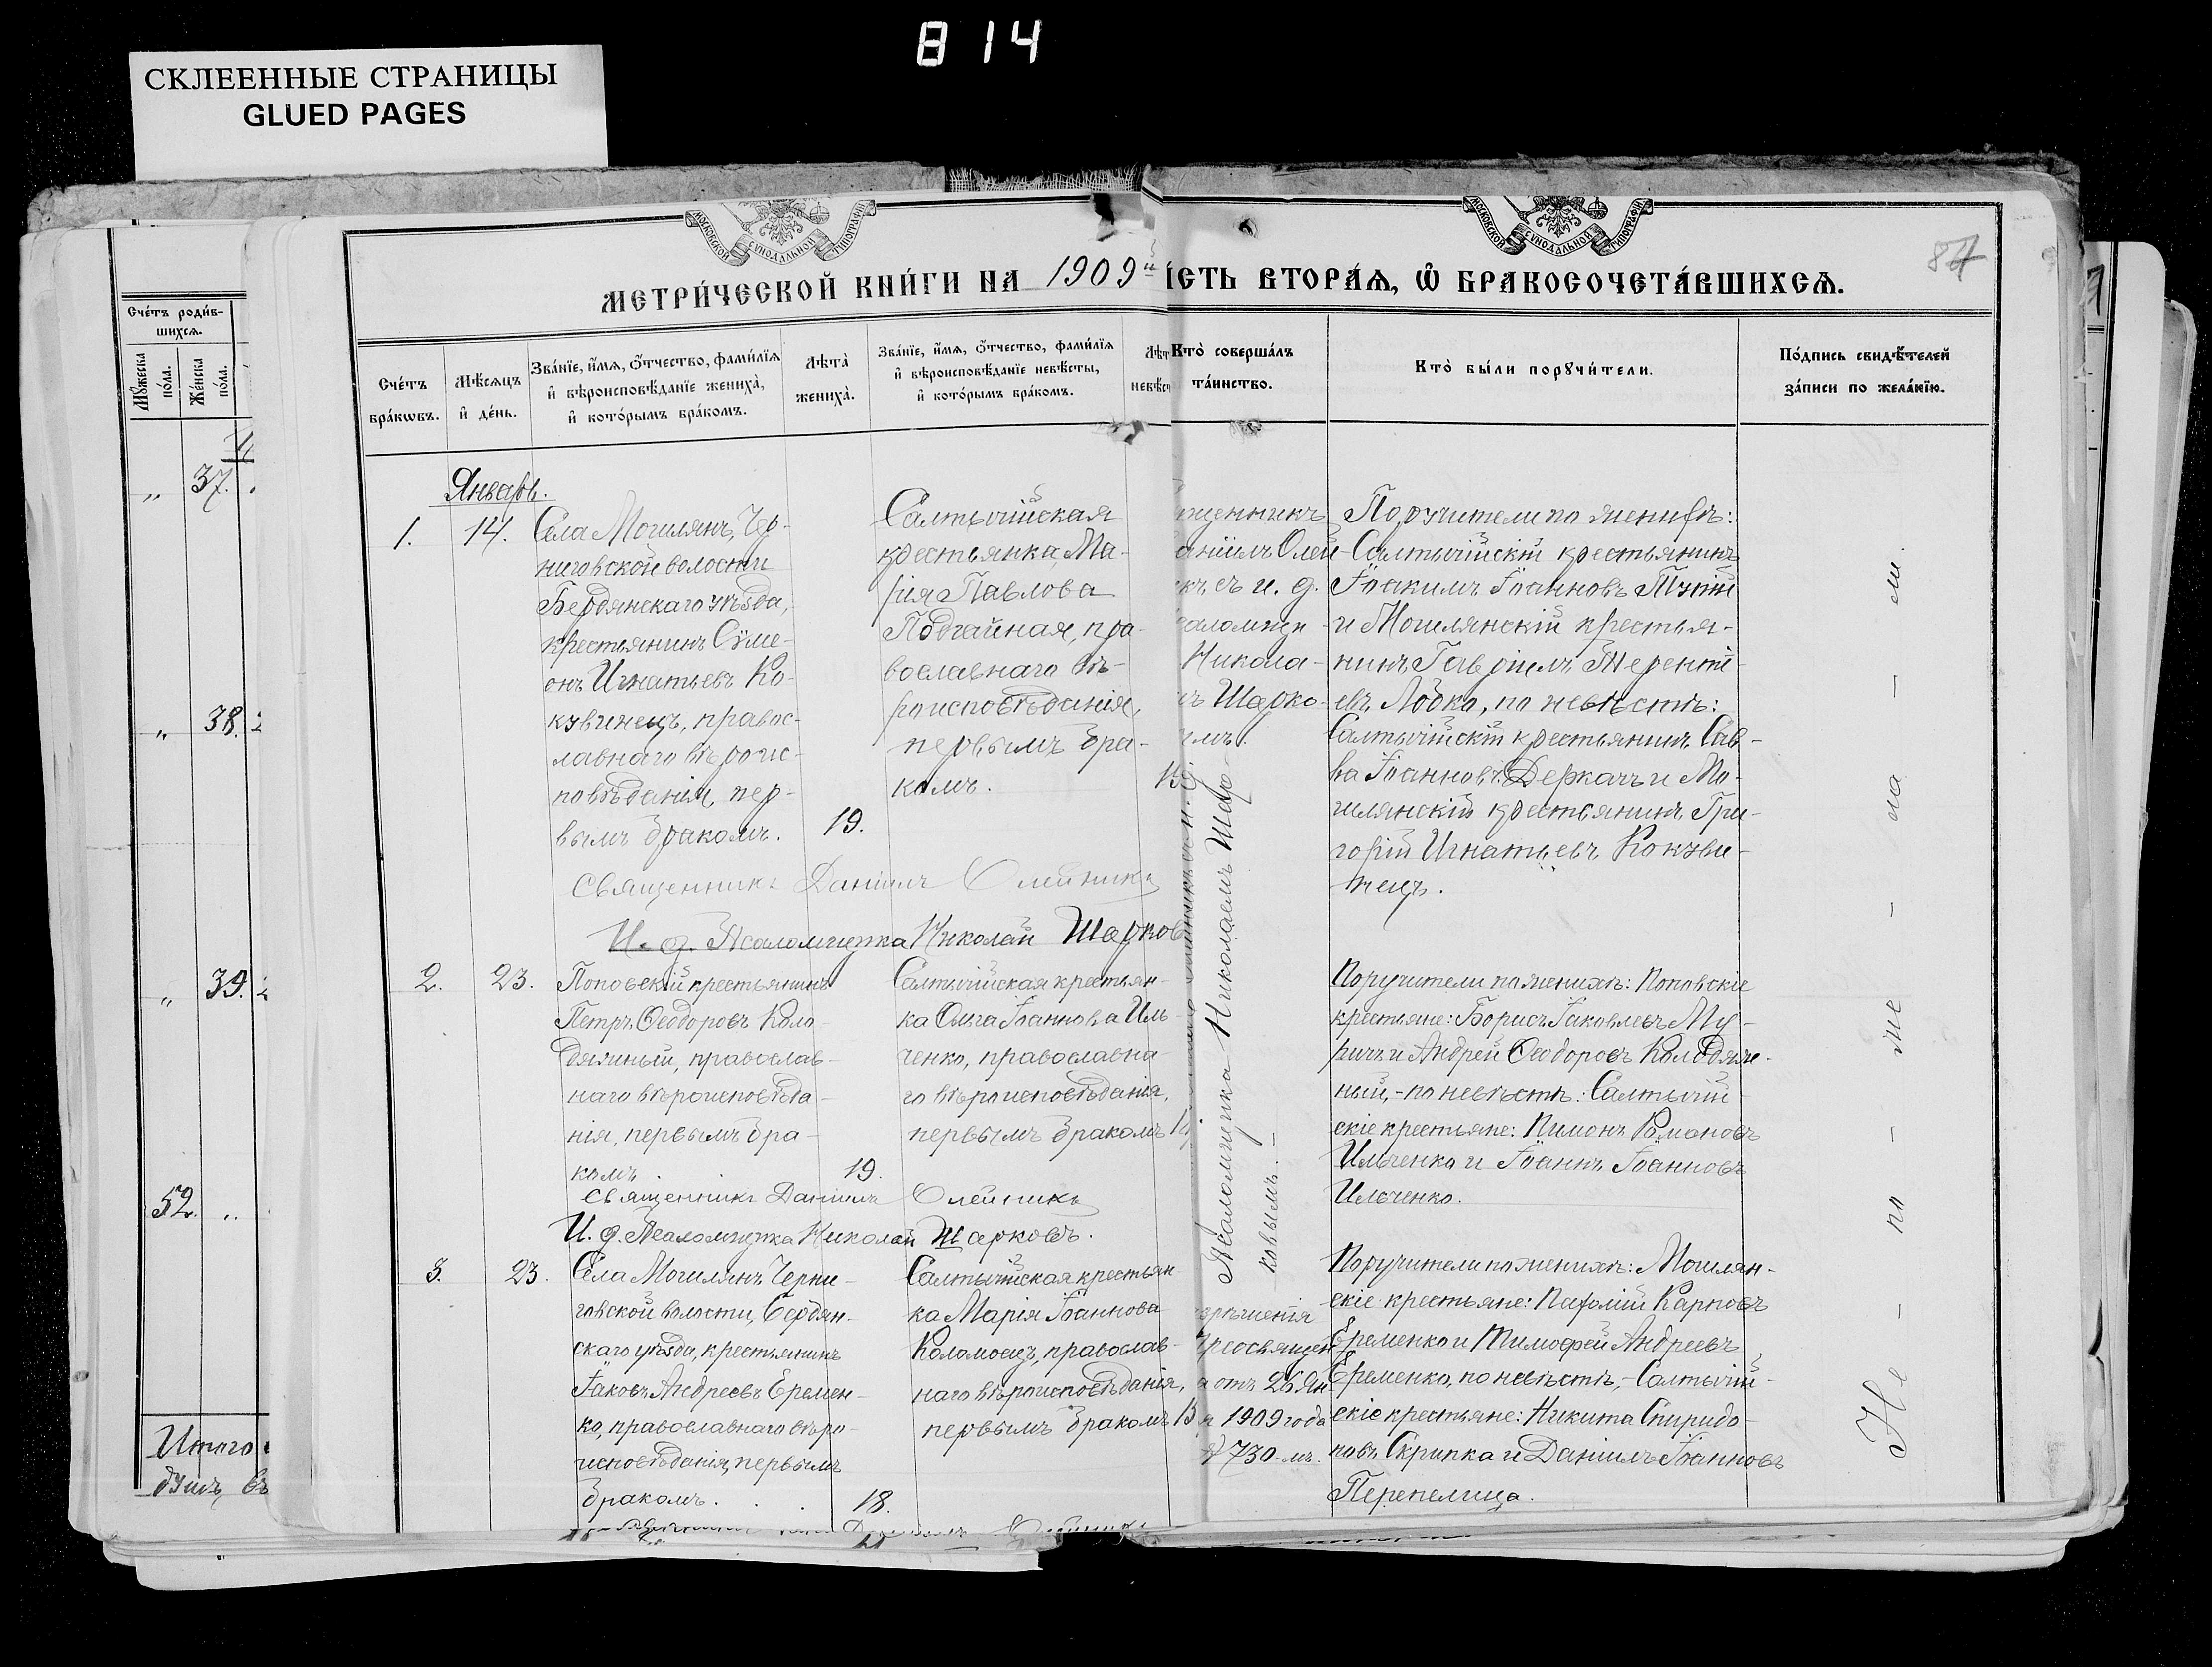 814
СКЛЕЕННЫЕ СТРАНИЦЫ
GLUED PAGES
МОСКОВСКОЙ СѴНОДАЛЬНОЙ ТИПОГРАФІИ
МОСКОВСКОЙ СѴНОДАЛЬНОЙ ТИПОГРАФІИ
МЕТРИ́ЧЕСКОЙ КНИ́ГИ НА 1909й
ІСТЬ ВТОРА́Ѧ, Ѽ БРАКОСОЧЕТА́ВШИХСѦ.
87
Сче́тъ роди́в-
шихсѧ.
Мꙋ́жеска по́ла.
Же́нска по́ла.
„ 37.
„ 38.
„ 39.
52. „
Итого
душъ, въ
Сче́тъ
бра́кѡвъ.
Мѣ́сѧцъ
и҆ де́нь.
Зва́нїе, и҆́мѧ, ѻ҆́тчество, фами́лїѧ
и҆ вѣроисповѣ́данїе жениха̀,
и҆ кото́рымъ бра́комъ.
Лѣта̀
жениха̀.
Зва́нїе, и҆́мѧ, ѻ҆́тчество, фами́лїѧ
и҆ вѣроисповѣ́данїе невѣ́сты,
и҆ кото́рымъ бра́комъ.
Лѣт
невѣс
Кто̀ соверша́лъ
та́инство.
Кто̀ бы́ли порꙋчи́тели.
По́дпись свидѣ́телей
за́писи по жела́нїю.
Январь.
1.
14.
Села Могилянъ, Чер-
ниговской волости
Бердянскаго уѣзда,
крестьянинъ Сѵме-
онъ Игнатьевъ Ко-
кувинецъ, правос-
лавнаго вѣроис-
повѣданія, пер-
вымъ бракомъ.
19.
Салтычійская
крестьянка, Ма-
рія Павлова
Подгайная, пра-
вославнаго вѣ-
роисповѣданія,
первымъ бра-
комъ.
щенникъ
аніилъ Олей-
къ съ и. д.
саломщи-
Никола-
ъ Шарко-
ымъ.
Поручители по женихѣ:
Салтычійскій крестьянинъ
Іоакимъ Іоанновъ Тупій
и Могилянскій крестья-
нинъ Гавріилъ Терентi-
евъ Лодка, по невѣстѣ:
Салтычійскій крестьянинъ Сав-
ва Іоанновъ Деркачъ и Мо-
гилянскій крестьянинъ Гри-
горій Игнатьевъ Кокуви-
нецъ.
Священникъ Даніилъ Олейникъ
И. д. Псаломщика Николай Шарков
2.
23.
Поповскій крестьянинъ
Петръ Ѳеодоровъ Коло-
дяжный, православ-
наго вѣроисповѣда-
нія, первымъ бра-
комъ . .
19.
Салтычійская крестьян-
ка Ольга Іоаннова Иль-
ченко, православна-
го вѣроисповѣданія,
первымъ бракомъ
Псаломщика Николаемъ Шар-
ковымъ. –
Поручители по женихѣ: Поповскіе
крестьяне: Борисъ Іаковлевъ Му-
ричъ и Андрей Ѳеодоровъ Колодяж-
ный, - по невѣстѣ: Салтычій-
скіе крестьяне: Пимонъ Романовъ
Ильченко и Іоаннъ Іоанновъ
Ильченко.
Священникъ Даніилъ Олейникъ
И. д. Псаломщика Николай Шарковъ.
3.
23.
Села Могилянъ Черни-
говской волости, Бердян-
скаго уѣзда, крестьянинъ
Іаковъ Андреевъ Еремен-
ко, православнаго вѣро-
исповѣданія, первымъ
бракомъ. . .
18.
Салтычійская крестьян-
ка Марія Іоаннова
Коломоецъ, православ-
наго вѣроисповѣданія,
первымъ бракомъ
зрѣшенія
Преосвящен
а отъ 26 Ян
я 1909 года
№ 730-мъ.
Поручители по женихѣ: Могилян-
скіе крестьяне: Пафолій Карповъ
Еременко и Тимофей Андреевъ
Еременко, по невѣстѣ, - Салтычій-
скіе крестьяне: Никита Спиридо-
новъ Скрипка и Даніилъ Іоанновъ
Перепелица.
Не – по – же – ла – ли.